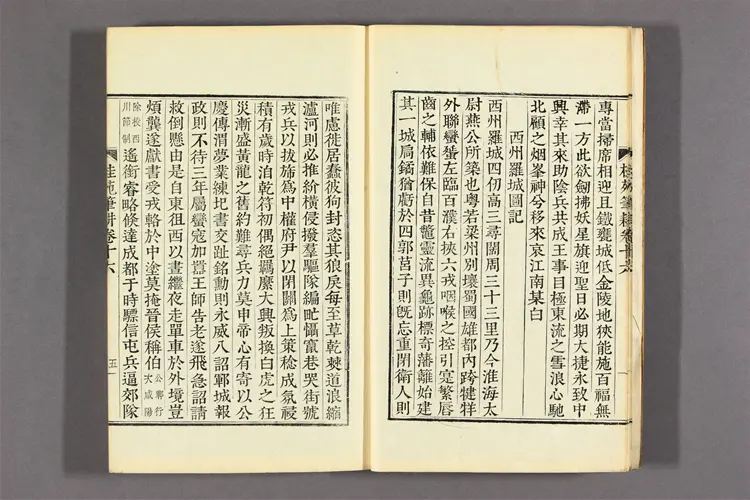 專當掃席相迎且鐵甕城低金陵地狹能施百福無
滯一方此欲劍拂妖星旗迎聖日必期大捷永致中
興幸其來助陰兵共成王事目極東流之雪浪心馳
北顧之烟峯神兮移來哀江南某白
西州羅城圖記
西州羅城四仞高三尋闊周三十三里乃今淮海太
尉燕公所築也粤若梁州別壤蜀國雄都內跨犍牂
外聯蠻蜑左臨百濮右挾六戎咽喉之控引寔繁唇
齒之輔依難保自昔鼈靈流異龜跡標奇藩籬始建
其一城扃鐍猶虧於四郭莒子則旣忘重閉衛人則
唯慮徙居蠢彼狗封恣其狼戾每至草乾棘道浪縮
瀘河則必推紛橫侵撥羣驅隊編甿懾竄巷哭街號
戎兵以拔旆爲中權府尹以閉關爲上策稔成氛祲
積有歲時洎乾符初偶絕羈縻大興叛換白虎之狂
災漸盛黃龍之舊約難尋兵力莫申帝心有寄以公
慶傳渭夢業練圯書交趾銘勳則永威八詔鄆城報
政則不待三年屬蠻寇加嚚王師告老遂飛急詔請
救倒懸由是自東徂西以晝繼夜走單車於外境豈
煩龔遂獻書受戎輅於中塗莫掩晉侯稱伯公鄆行次咸陽
除授西川節制遙銜睿略倏達成都于時驃信屯兵逼郊隊
桂苑筆耕卷十六
五